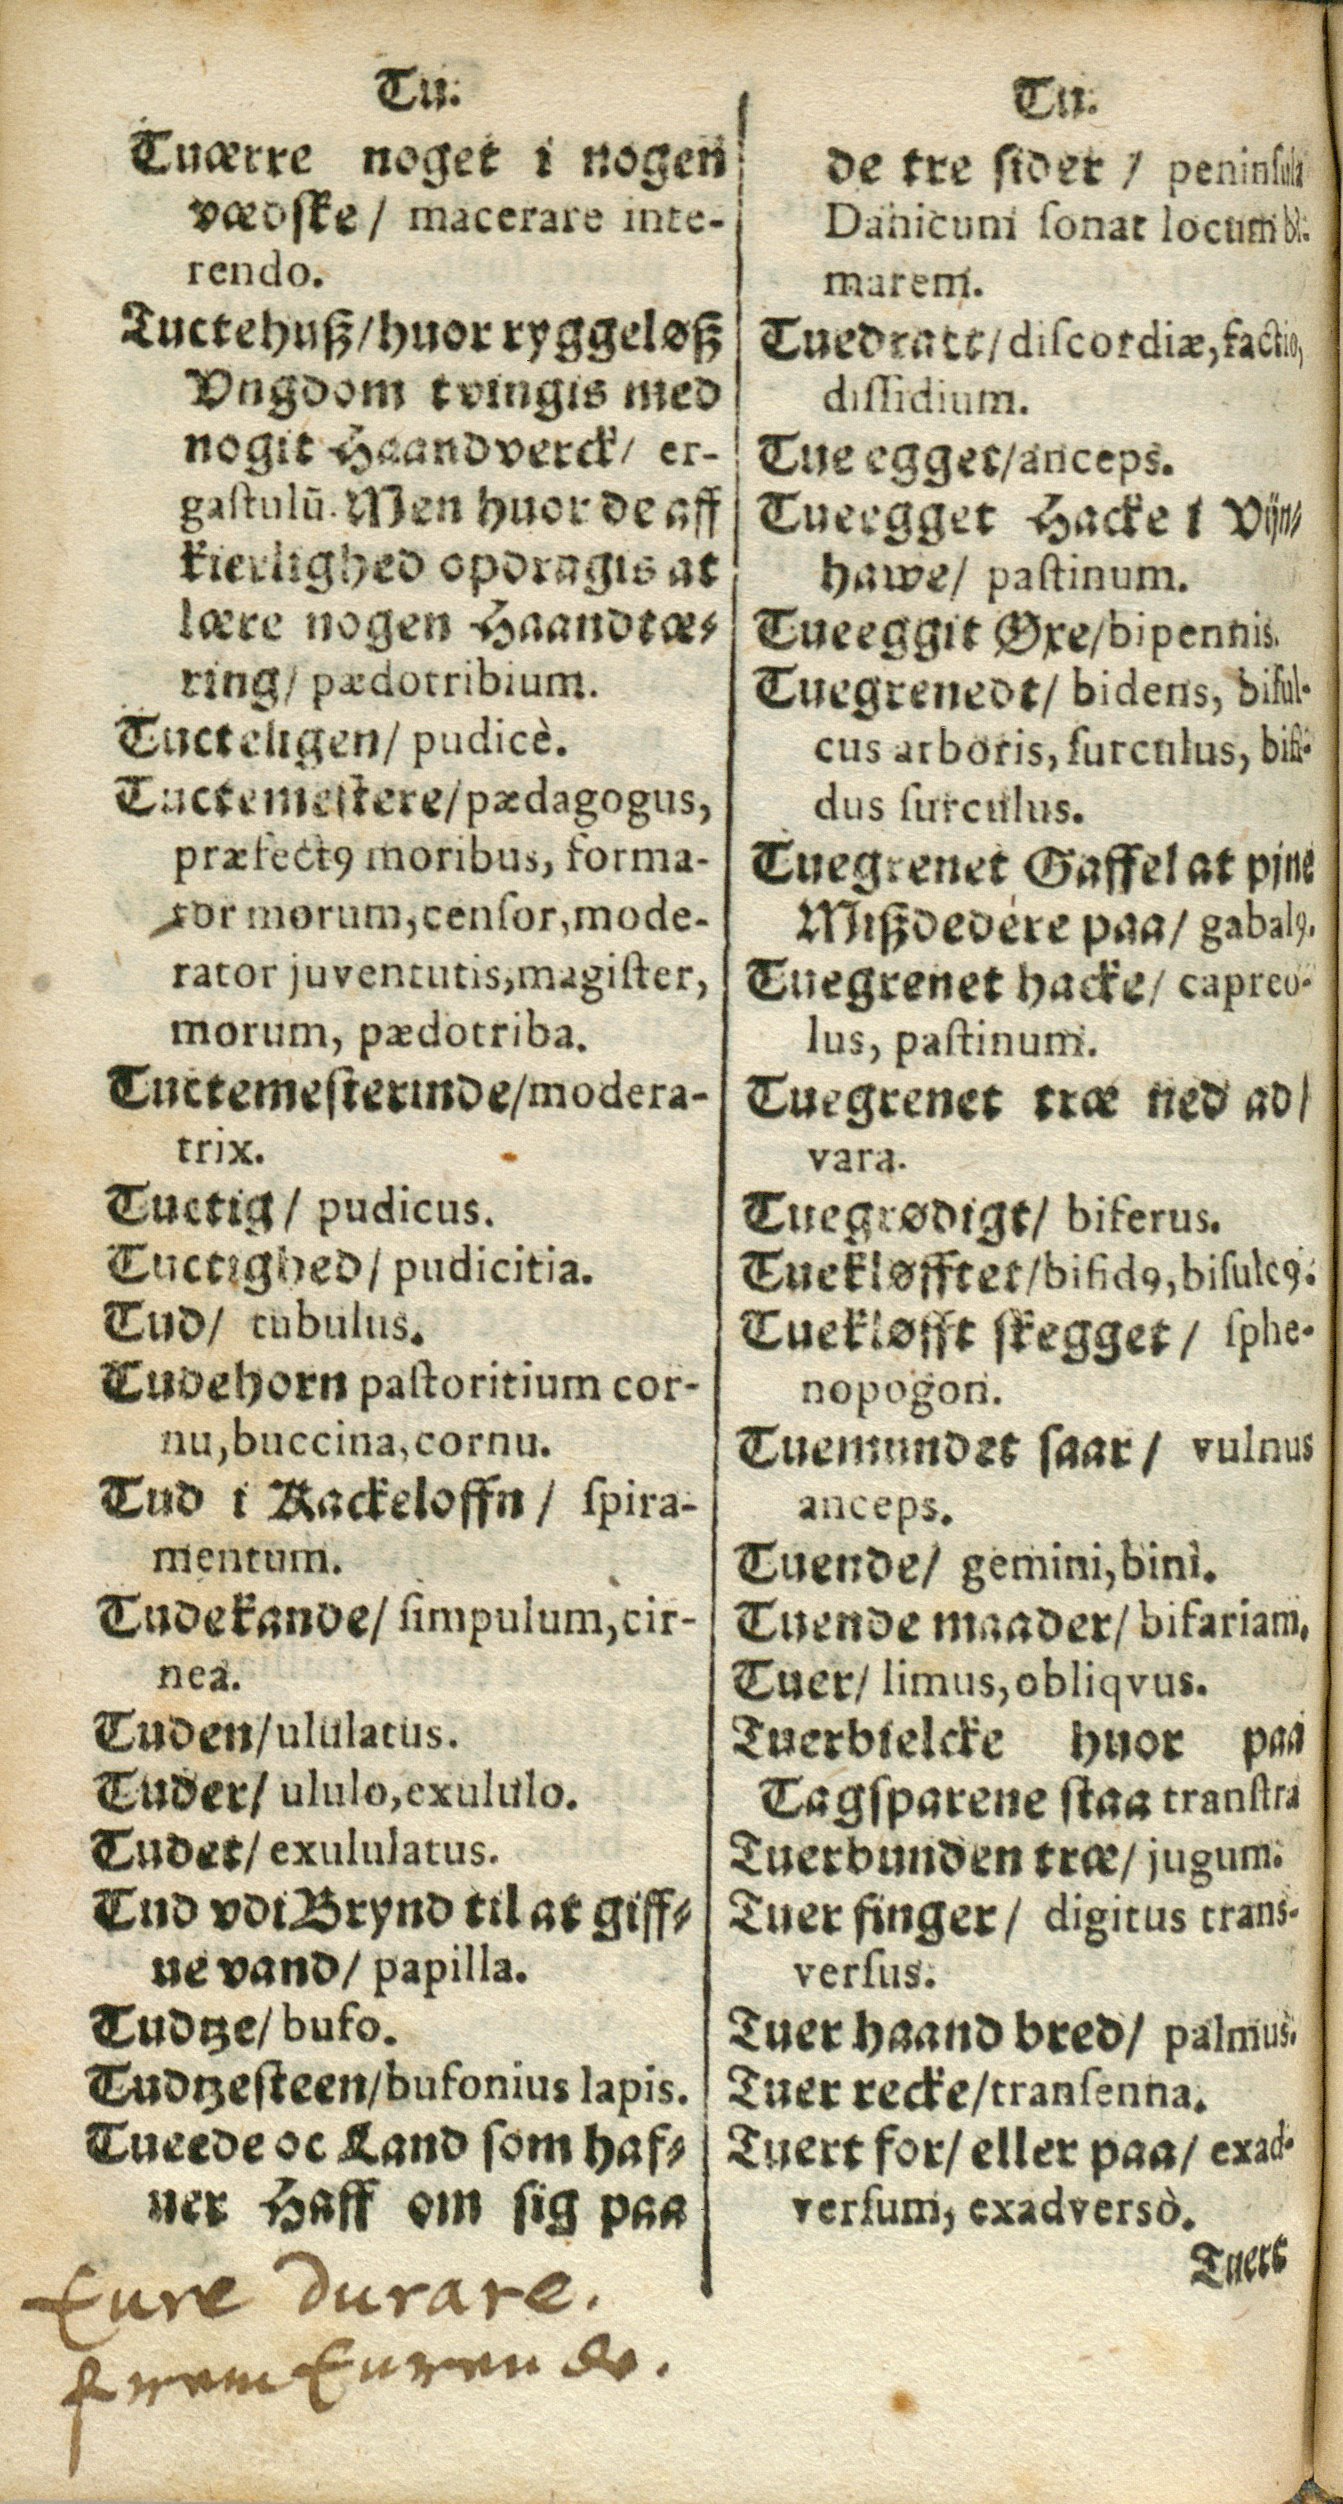 Tu.
Tuærre noget i nogen
vædske/ macerare inte-
rendo.
Tuctehuß/huor ryggeløß
Vngdom tvingis med
nogit Haandverck/ er-
gaſtulū. Men huor de aff
kierlighed opdragis at
lære nogen Haandtæ-
ring/ pædotribium.
Tucteligen/ pudicè.
Tuctemeſtere/pædagogus,
præfectꝯ moribus, forma-
tor morum,cenſor,mode-
rator juventutis,magiſter,
morum, pædotriba.
Tuctemeſterinde/modera-
trix.
Tuctig/ pudicus.
Tuctighed/ pudicitia.
Tud/ tubulus.
Tudehorn paſtoritium cor-
nu,buccina,cornu.
Tud i Kackeloffn/ ſpira-
mentum.
Tudekande/ ſimpulum,cir-
nea.
Tuden/ululatus.
Tuder/ ululo,exululo.
Tudet/ exululatus.
Tud vdi Brynd til at giff-
ue vand/ papilla.
Tudtze/ bufo.
Tudtzeſteen/bufonius lapis.
Tueede oc Land ſom haf-
uer Haff om ſig paa
Eure durare.
Tu.
de tre ſider/ peninſula
Danicum ſonat locum bi-
marem.
Tuedract/diſcordiæ,factio,
diſſidium.
Tue egget/anceps.
Tueegget Hacke i Vijn-
hawe/ paſtinum.
Tueeggit Øxe/bipennis.
Tuegrenedt/ bidens, biſul-
cus arboris, ſurculus, bifi-
dus ſurculus.
Tuegrenet Gaffel at pjne
Mißdedere paa/ gabalꝯ.
Tuegrenet hacke/ capreo-
lus, paſtinum.
Tuegrenet træ ned ad/
vara.
Tuegrødigt/ biferus.
Tuekløfftet/bifidꝯ,biſulcꝯ.
Tuekløfft ſkegget/ ſphe-
nopogon.
Tuemundet ſaar/ vulnus
anceps.
Tuende/ gemini,bini.
Tuende maader/ bifariam.
Tuer/ limus,obliqvus.
Tuerbielcke huor paa
Tagſparene ſtaa tranſtra
Tuerbunden træ/ jugum.
Tuer finger/ digitus trans-
verſus.
Tuer haand bred/ palmus.
Tuer recke/tranſenna.
Tuert for/ eller paa/ exad-
verſum, exadversò.
Tuert